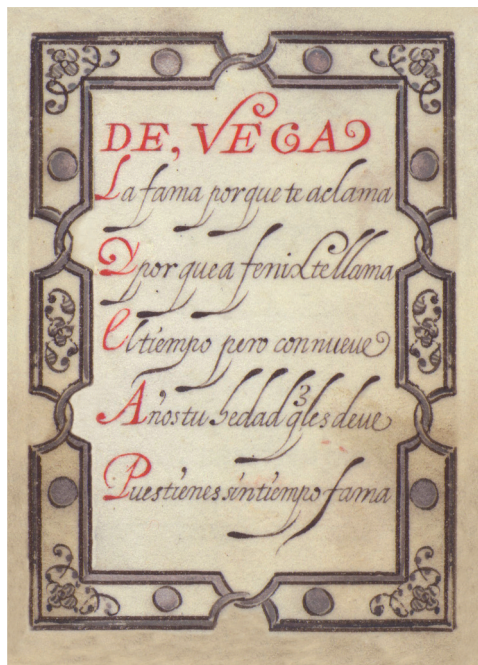 DE, VEGA
La fama porque te aclama
Y por que a fenix te llama
el tiempo pero con nueve
Años tu hedad q̃ les deve
Pues tienes sin tiempo fama